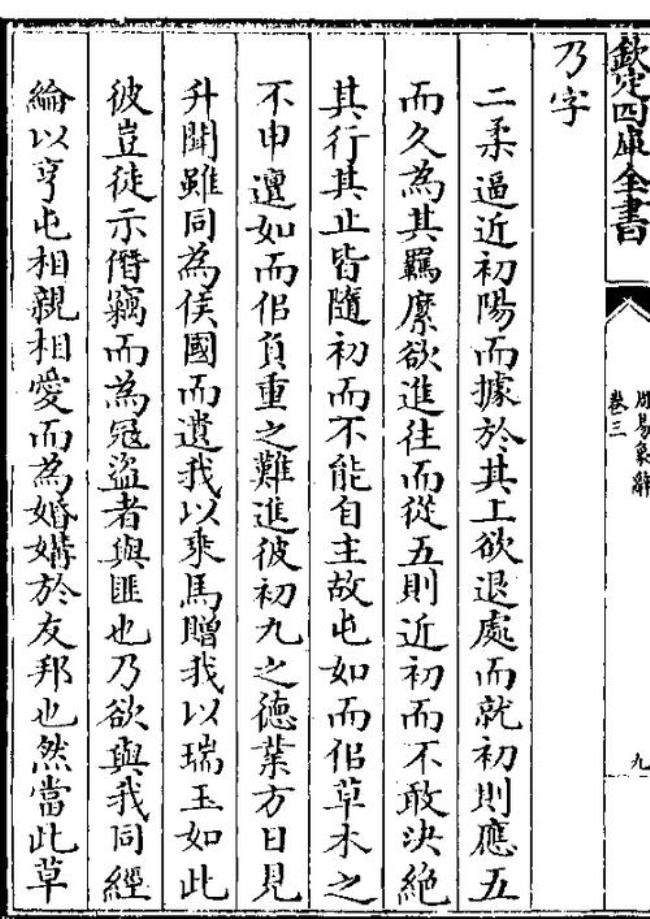 欽定四庫全書
周易象辭
卷三
九
乃字
二柔逼近初陽而據於其上欲退處而就初則應五
而久為其羈縻欲進往而從五則近初而不敢決絶
其行其止皆隨初而不能自主故屯如而佀草木之
不申邅如而佀負重之難進彼初九之德業方日見
升聞雖同為侯國而遺我以乘馬贈我以瑞玉如此
彼豈徒示僭竊而為冦盜者與匪也乃欲與我同經
綸以亨屯相親相愛而為婚媾於友邦也然當此草